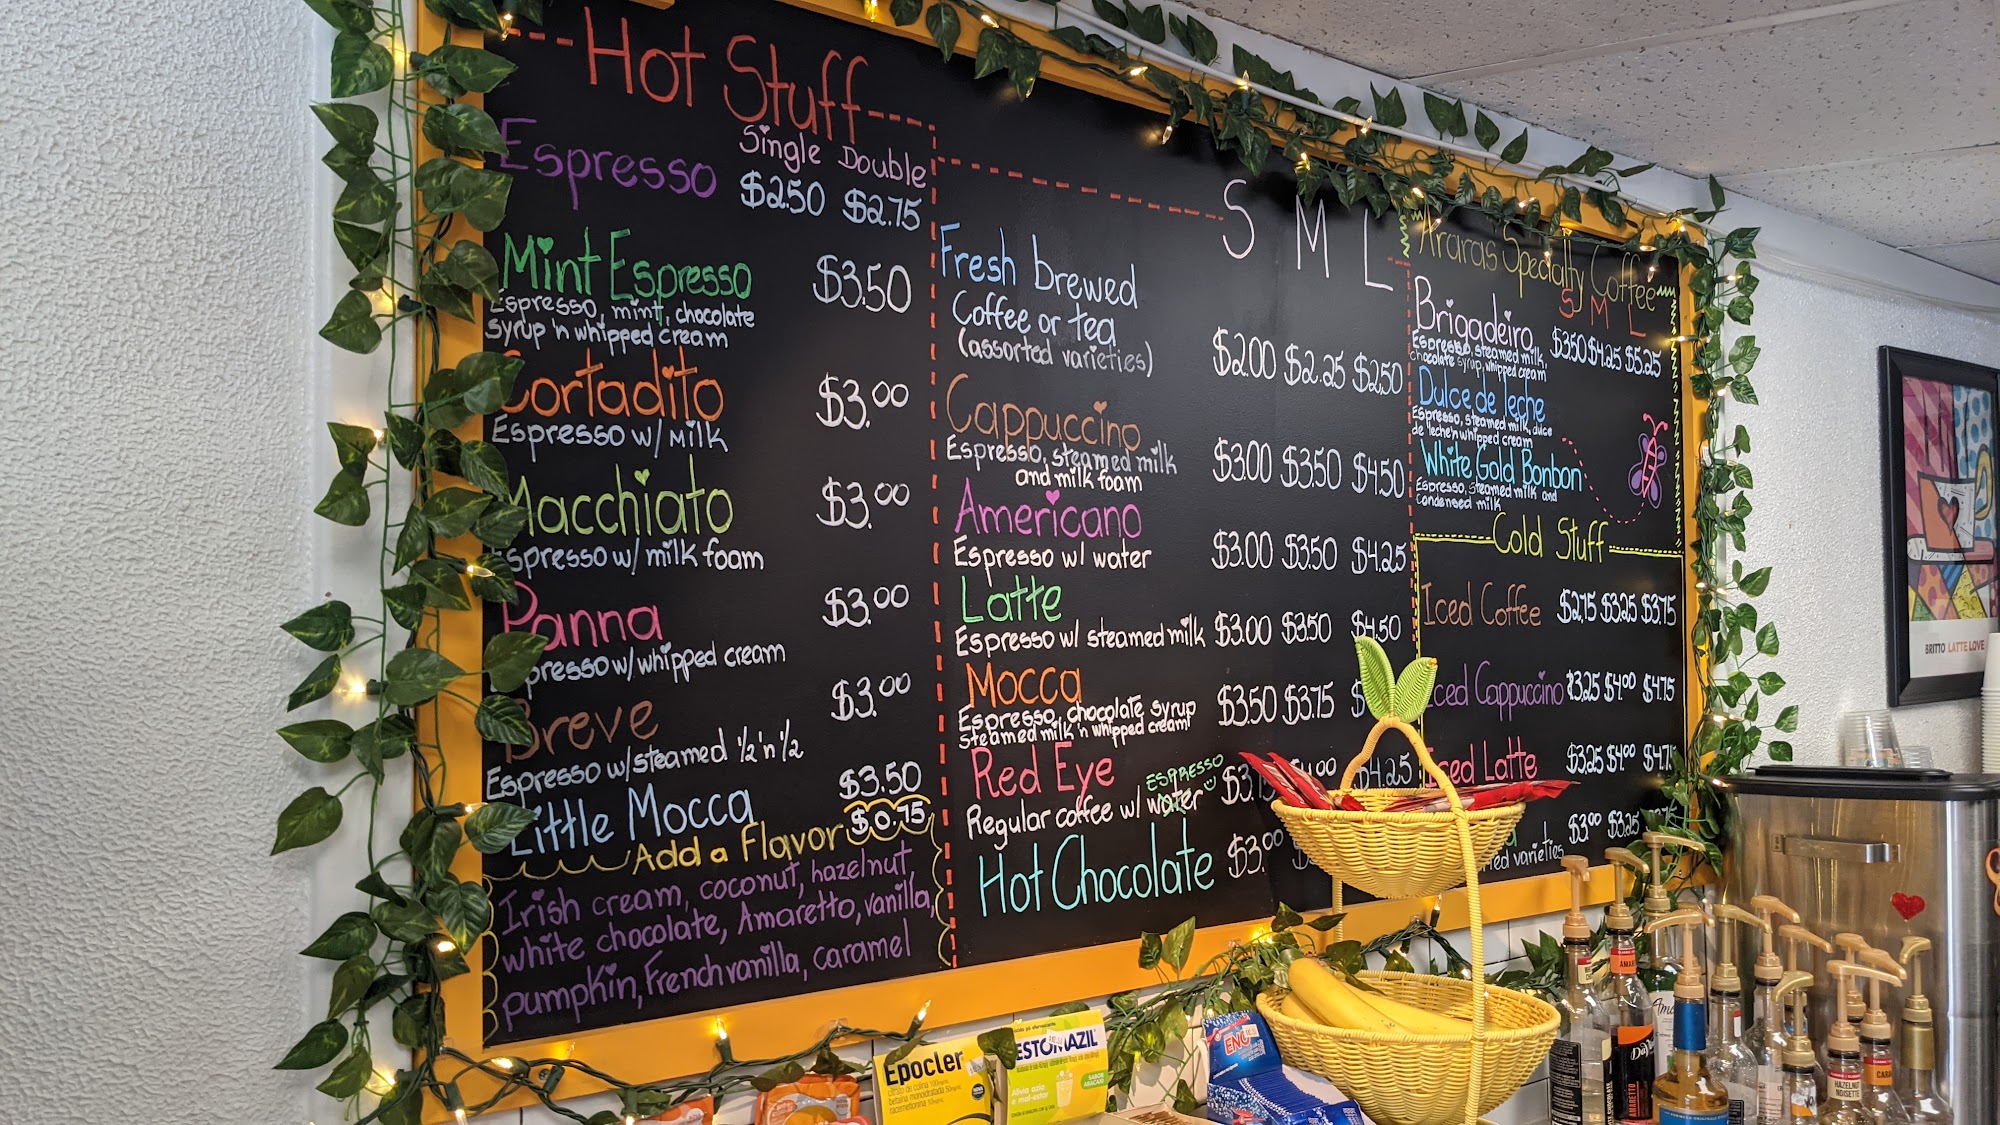 Hot Stuff
Single Double
Espresso $2.50 $2.75
Mint Espresso $3.50
Espresso, mint, chocolate
syrup 'n whipped cream
Cortadito $3.00
Espresso w/ Milk
Macchiato $3.00
Espresso w/ milk foam
Panna $3.00
Espresso w/ whipped cream
Breve $3.00
Espresso w/ steamed 1/2 'n 1/2
Little Mocca $3.50
Add a Flavor $0.75
Irish cream, coconut, hazelnut,
white chocolate, Amaretto, vanilla,
pumpkin, French vanilla, caramel
S M L
Fresh brewed
Coffee or tea
(assorted varieties) $2.00 $2.25 $2.50
Cappuccino $3.00 $3.50 $4.50
Espresso, steamed milk
and milk foam
Americano $3.00 $3.50 $4.25
Espresso w/ water
Latte
Espresso w/ steamed milk $3.00 $3.50 $4.50
Mocca $3.50 $3.75
Espresso, chocolate syrup
steamed milk 'n whipped cream
Red Eye
ESPRESSO
Regular coffee w/ water $4.25
Hot Chocolate $3.00
Araras Specialty Coffee
S M L
Brigadeiro $3.50 $4.25 $5.25
Espresso, steamed milk,
chocolate syrup, whipped cream
Dulce de leche
Espresso, steamed milk, dulce
de leche 'n whipped cream
White Gold Bonbon
Espresso, steamed milk and
condensed milk
Cold Stuff
Iced Coffee $2.75 $3.25 $3.75
Iced Cappuccino $3.25 $4.00 $4.75
Iced Latte $3.25 $4.00 $4.75
$3.00 $3.25
varieties
BRITTO LATTE LOVE
Epocler
ESTOMAZIL
ENO
HAZELNUT
NOISETTE